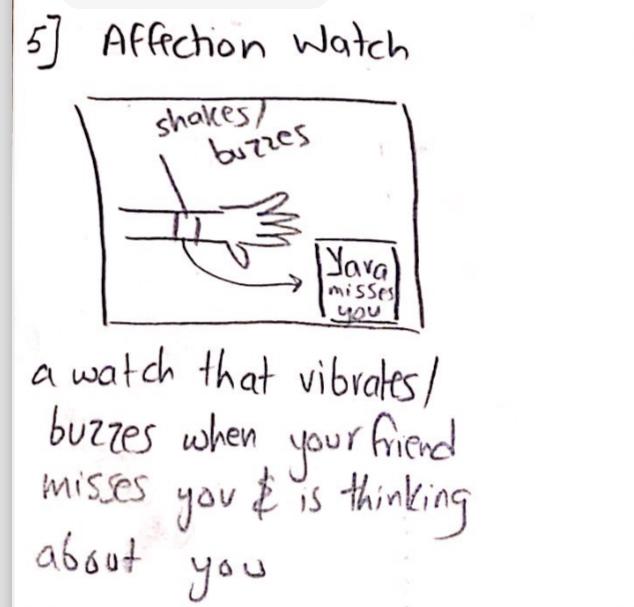 5] Affection Watch
shakes/
buzzes
Yara
misses
you
a watch that vibrates/
buzzes when your friend
misses you & is thinking
about you